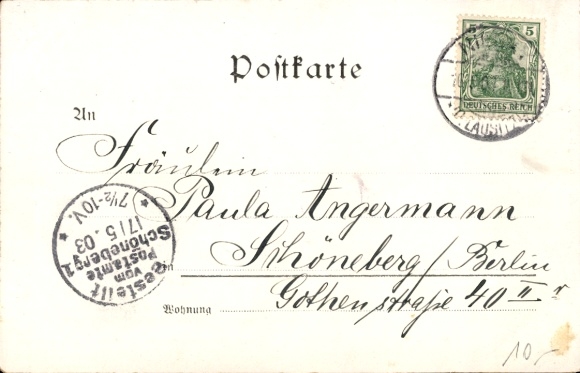 5 5
DEUTSCHES REICH
LAUSITZ
Postkarte
An
Fräulein
Paula Angermann
in Schöneberg/Berlin
Wohnung Gothenstraße 40 II r
Bestellt
vom
Postamte
Schöneberg 1
17/5.03
7½-10V.
10,-